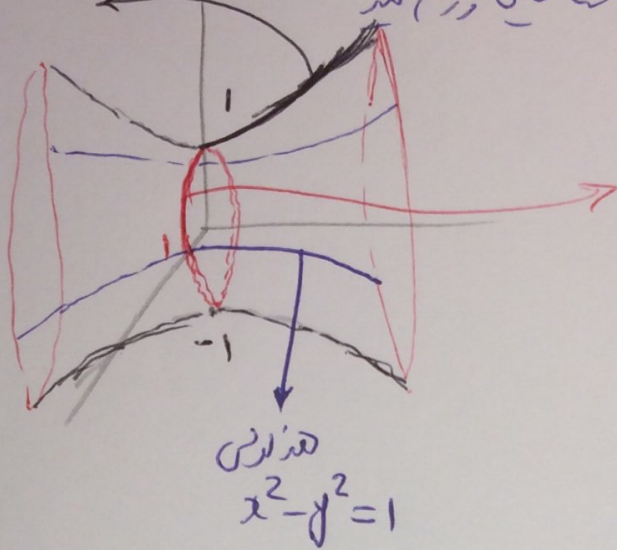 1
1
-1
هذلولی
x² - y² = 1